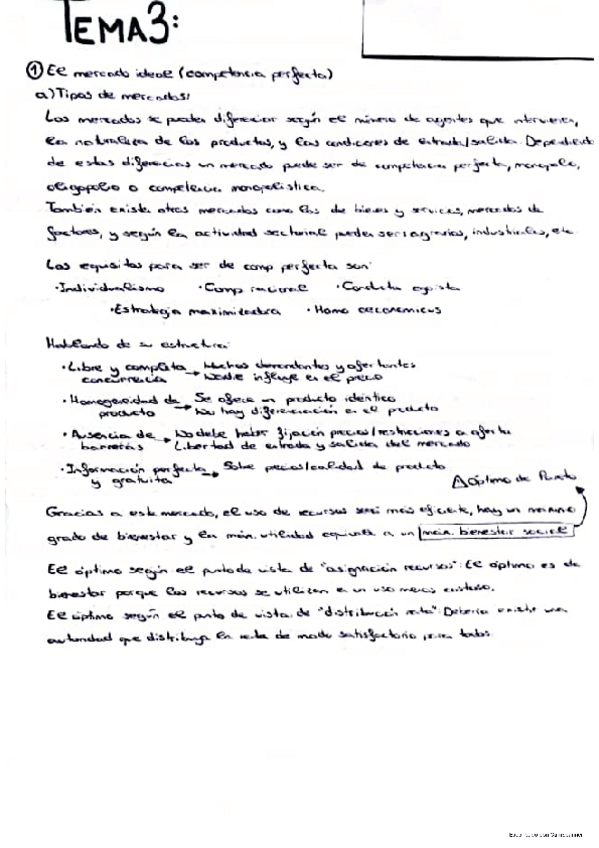 TEMA3:
① El mercado ideal (competencia perfecta)
a) Tipos de mercados:
Los mercados se pueden diferenciar según el número de agentes que intervienen,
la naturaleza de los productos, y las condiciones de entrada/salida. Dependiendo
de estas diferencias un mercado puede ser de competencia perfecta, monopolio,
oligopolio o competencia monopolística.
También existen otros mercados como los de bienes y servicios, mercados de
factores, y según la actividad sectorial pueden ser agrarios, industriales, etc
Los requisitos para ser de comp perfecta son:
·Individualismo ·Comp racional ·Conducta egoista
·Estrategia maximizadora ·Homo oeconomicus
Hablando de su estructura:
·Libre y completa concurrencia → Muchos demandantes y ofertantes
Nadie influye en el precio
·Homogeneidad de producto → Se ofrece un producto idéntico
No hay diferenciación en el producto
·Ausencia de barreras → No debe haber fijación precios/restricciones a oferta
Libertad de entrada y salida del mercado
·Información perfecta y gratuita → Sobre precios/calidad de producto
óptimo de Pareto
Gracias a este mercado, el uso de recursos será más eficiente, hay un máximo
grado de bienestar y la máx. utilidad equivale a un máx. bienestar social
El óptimo según el punto de vista de "asignación recursos": El óptimo es de
bienestar porque los recursos se utilizan en un uso menos costoso.
El óptimo según el punto de vista de "distribución renta": Debería existir una
autoridad que distribuya la renta de modo satisfactorio para todos.